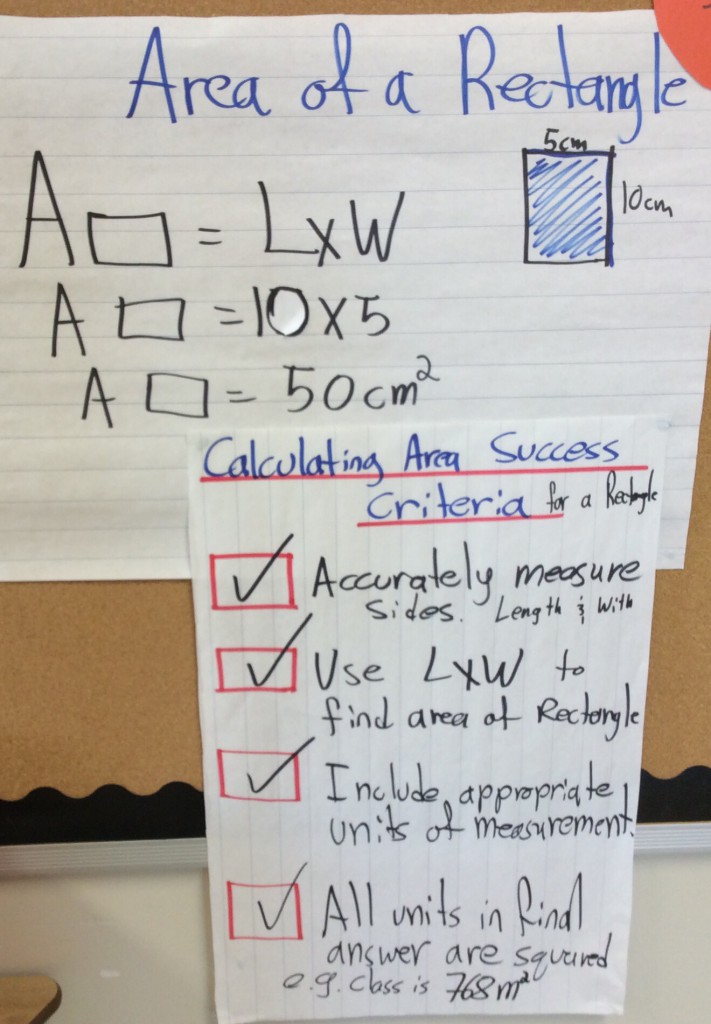 Area of a Rectangle
5cm
10cm
A = LxW
A = 10 x 5
A = 50cm²
Calculating Area Success
Criteria for a Rectangle
Accurately measure
sides. Length & With
Use LxW to
find area of Rectangle
Include appropriate
units of measurement.
All units in final
answer are squared
e.g. Class is 768 m²